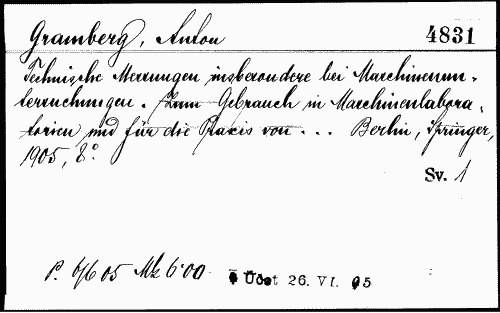 Gramberg, Anton 4831
Technische Messungen insbesondere bei Maschinenun-
tersuchungen. Zum Gebrauch in Maschinenlabora-
torien und für die Praxis von ... Berlin, Springer,
1905, 8°.
Sv. 1
P. 6/6 05 Mk 6·00 Účet 26. VI. 05